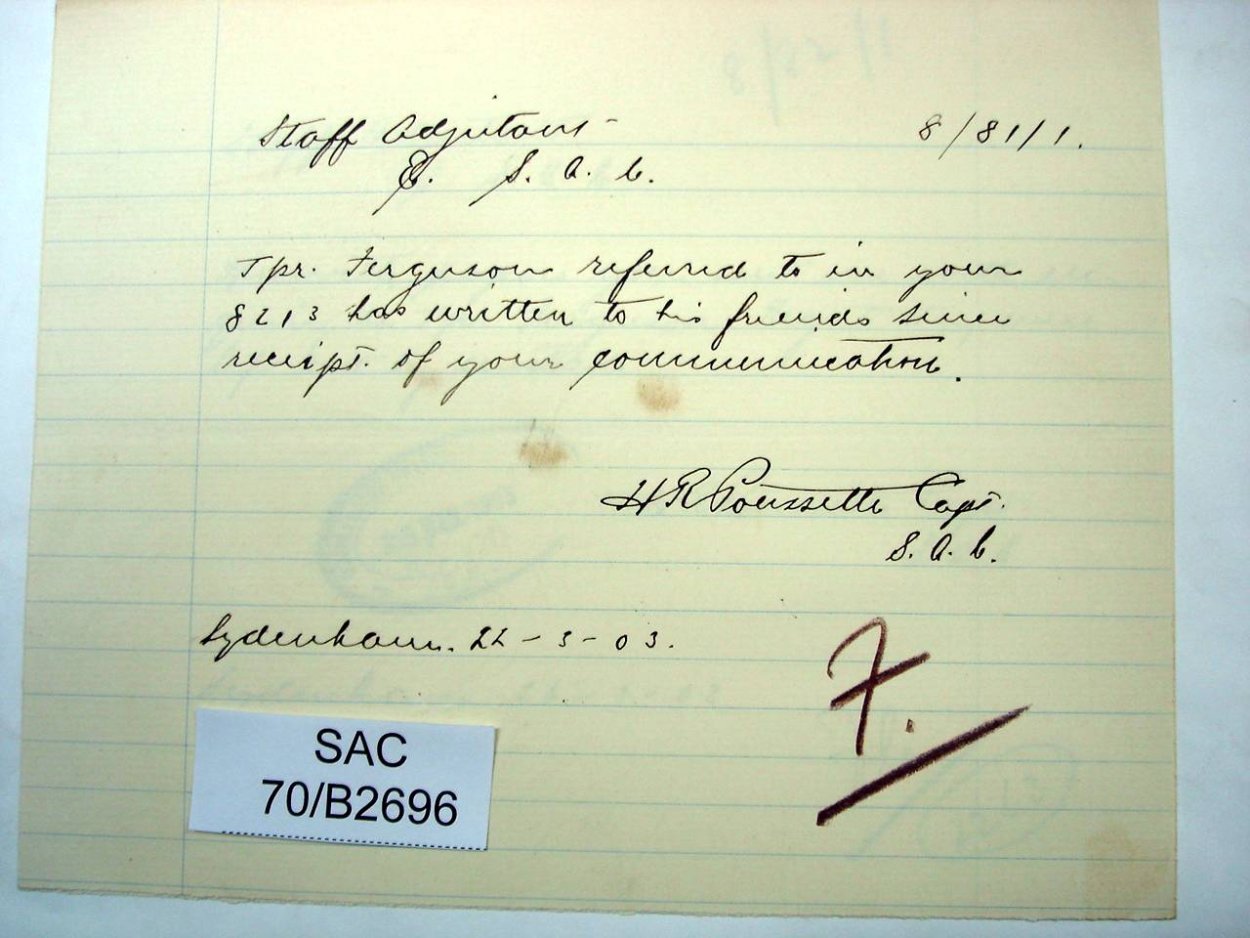 Staff Adjutant 8/81/1.
E. S.A.C.
Tpr. Ferguson referred to in your
8213 has written to his friends since
receipt. of your communication.
H R Poussette Capt.
S.A.C.
Lydenham. 22-3-03.
7.
SAC
70/B2696